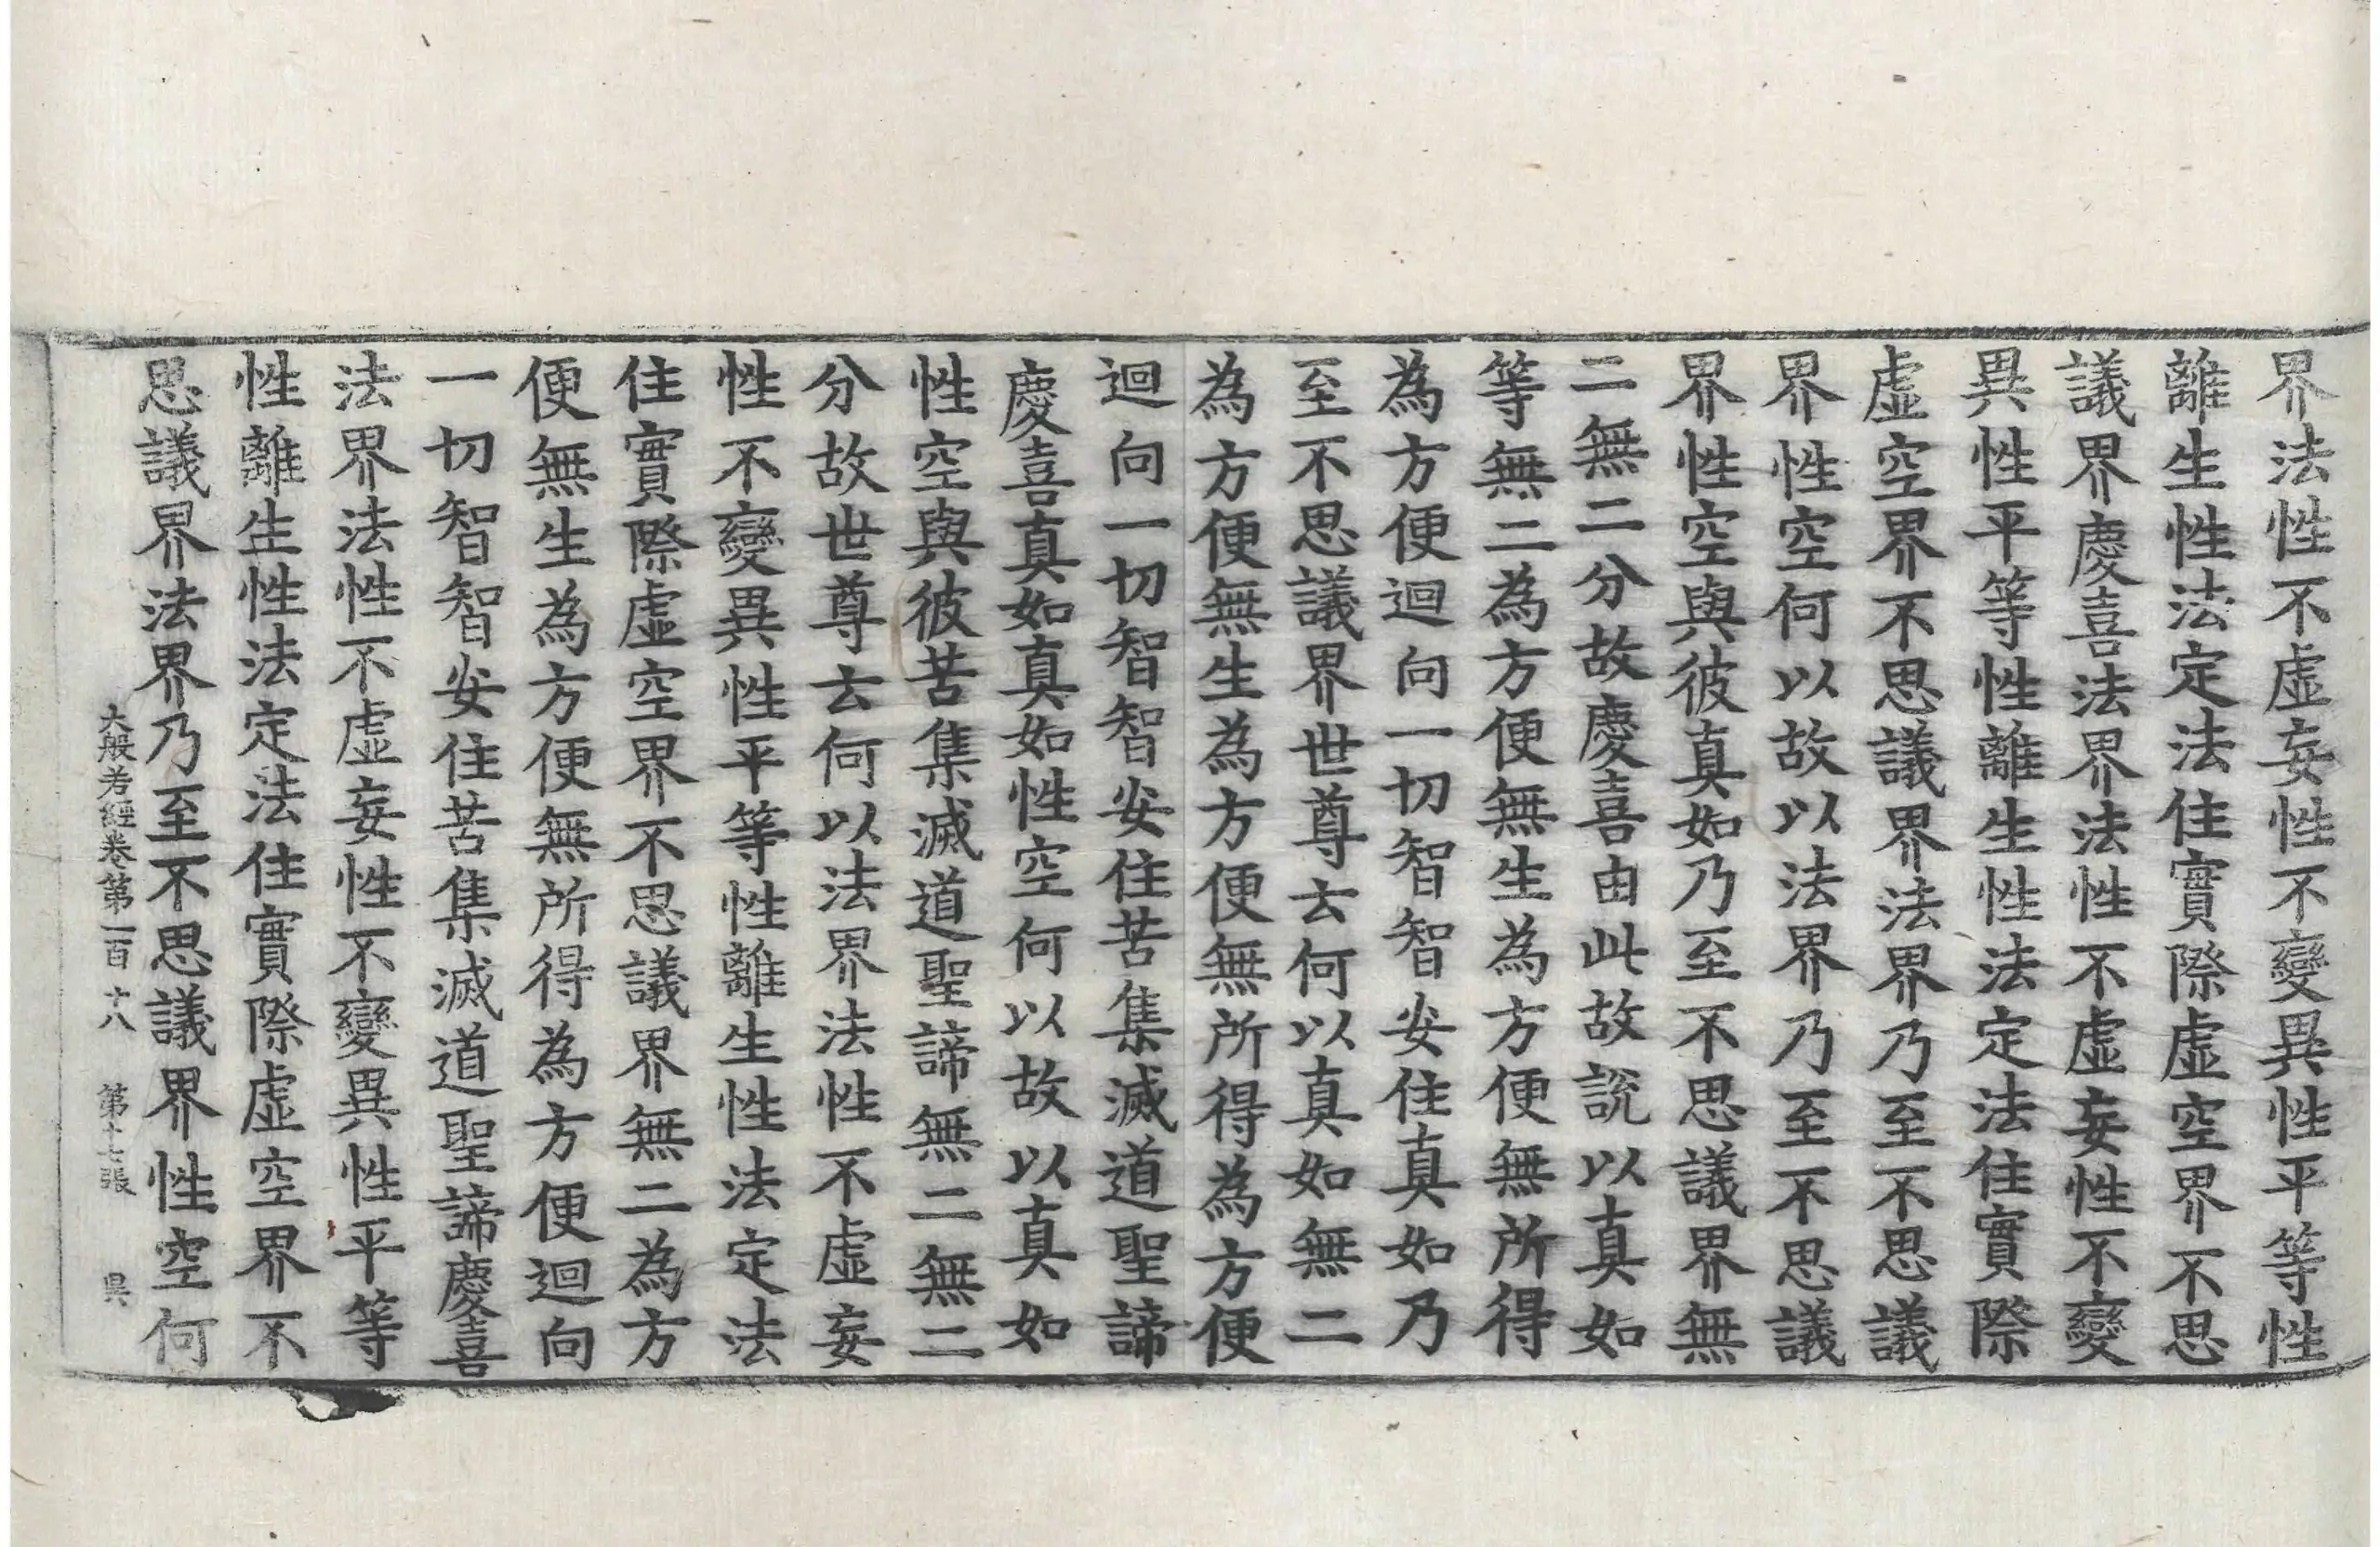 界法性不虛妄性不變異性平等性
離生性法定法住實際虛空界不思
議界慶喜法界法性不虛妄性不變
異性平等性離生性法定法住實際
虛空界不思議界法界乃至不思議
界性空何以故以法界乃至不思議
界性空與彼真如乃至不思議界無
二無二分故慶喜由此故說以真如
等無二為方便無生為方便無所得
為方便迴向一切智智安住真如乃
至不思議界世尊云何以真如無二
為方便無生為方便無所得為方便
迴向一切智智安住苦集滅道聖諦
慶喜真如真如性空何以故以真如
性空與彼苦集滅道聖諦無二無二
分故世尊云何以法界法性不虛妄
性不變異性平等性離生性法定法
住實際虛空界不思議界無二為方
便無生為方便無所得為方便迴向
一切智智安住苦集滅道聖諦慶喜
法界法性不虛妄性不變異性平等
性離生性法定法住實際虛空界不
思議界法界乃至不思議界性空何
大般若經卷第一百十八 第十七張 昃